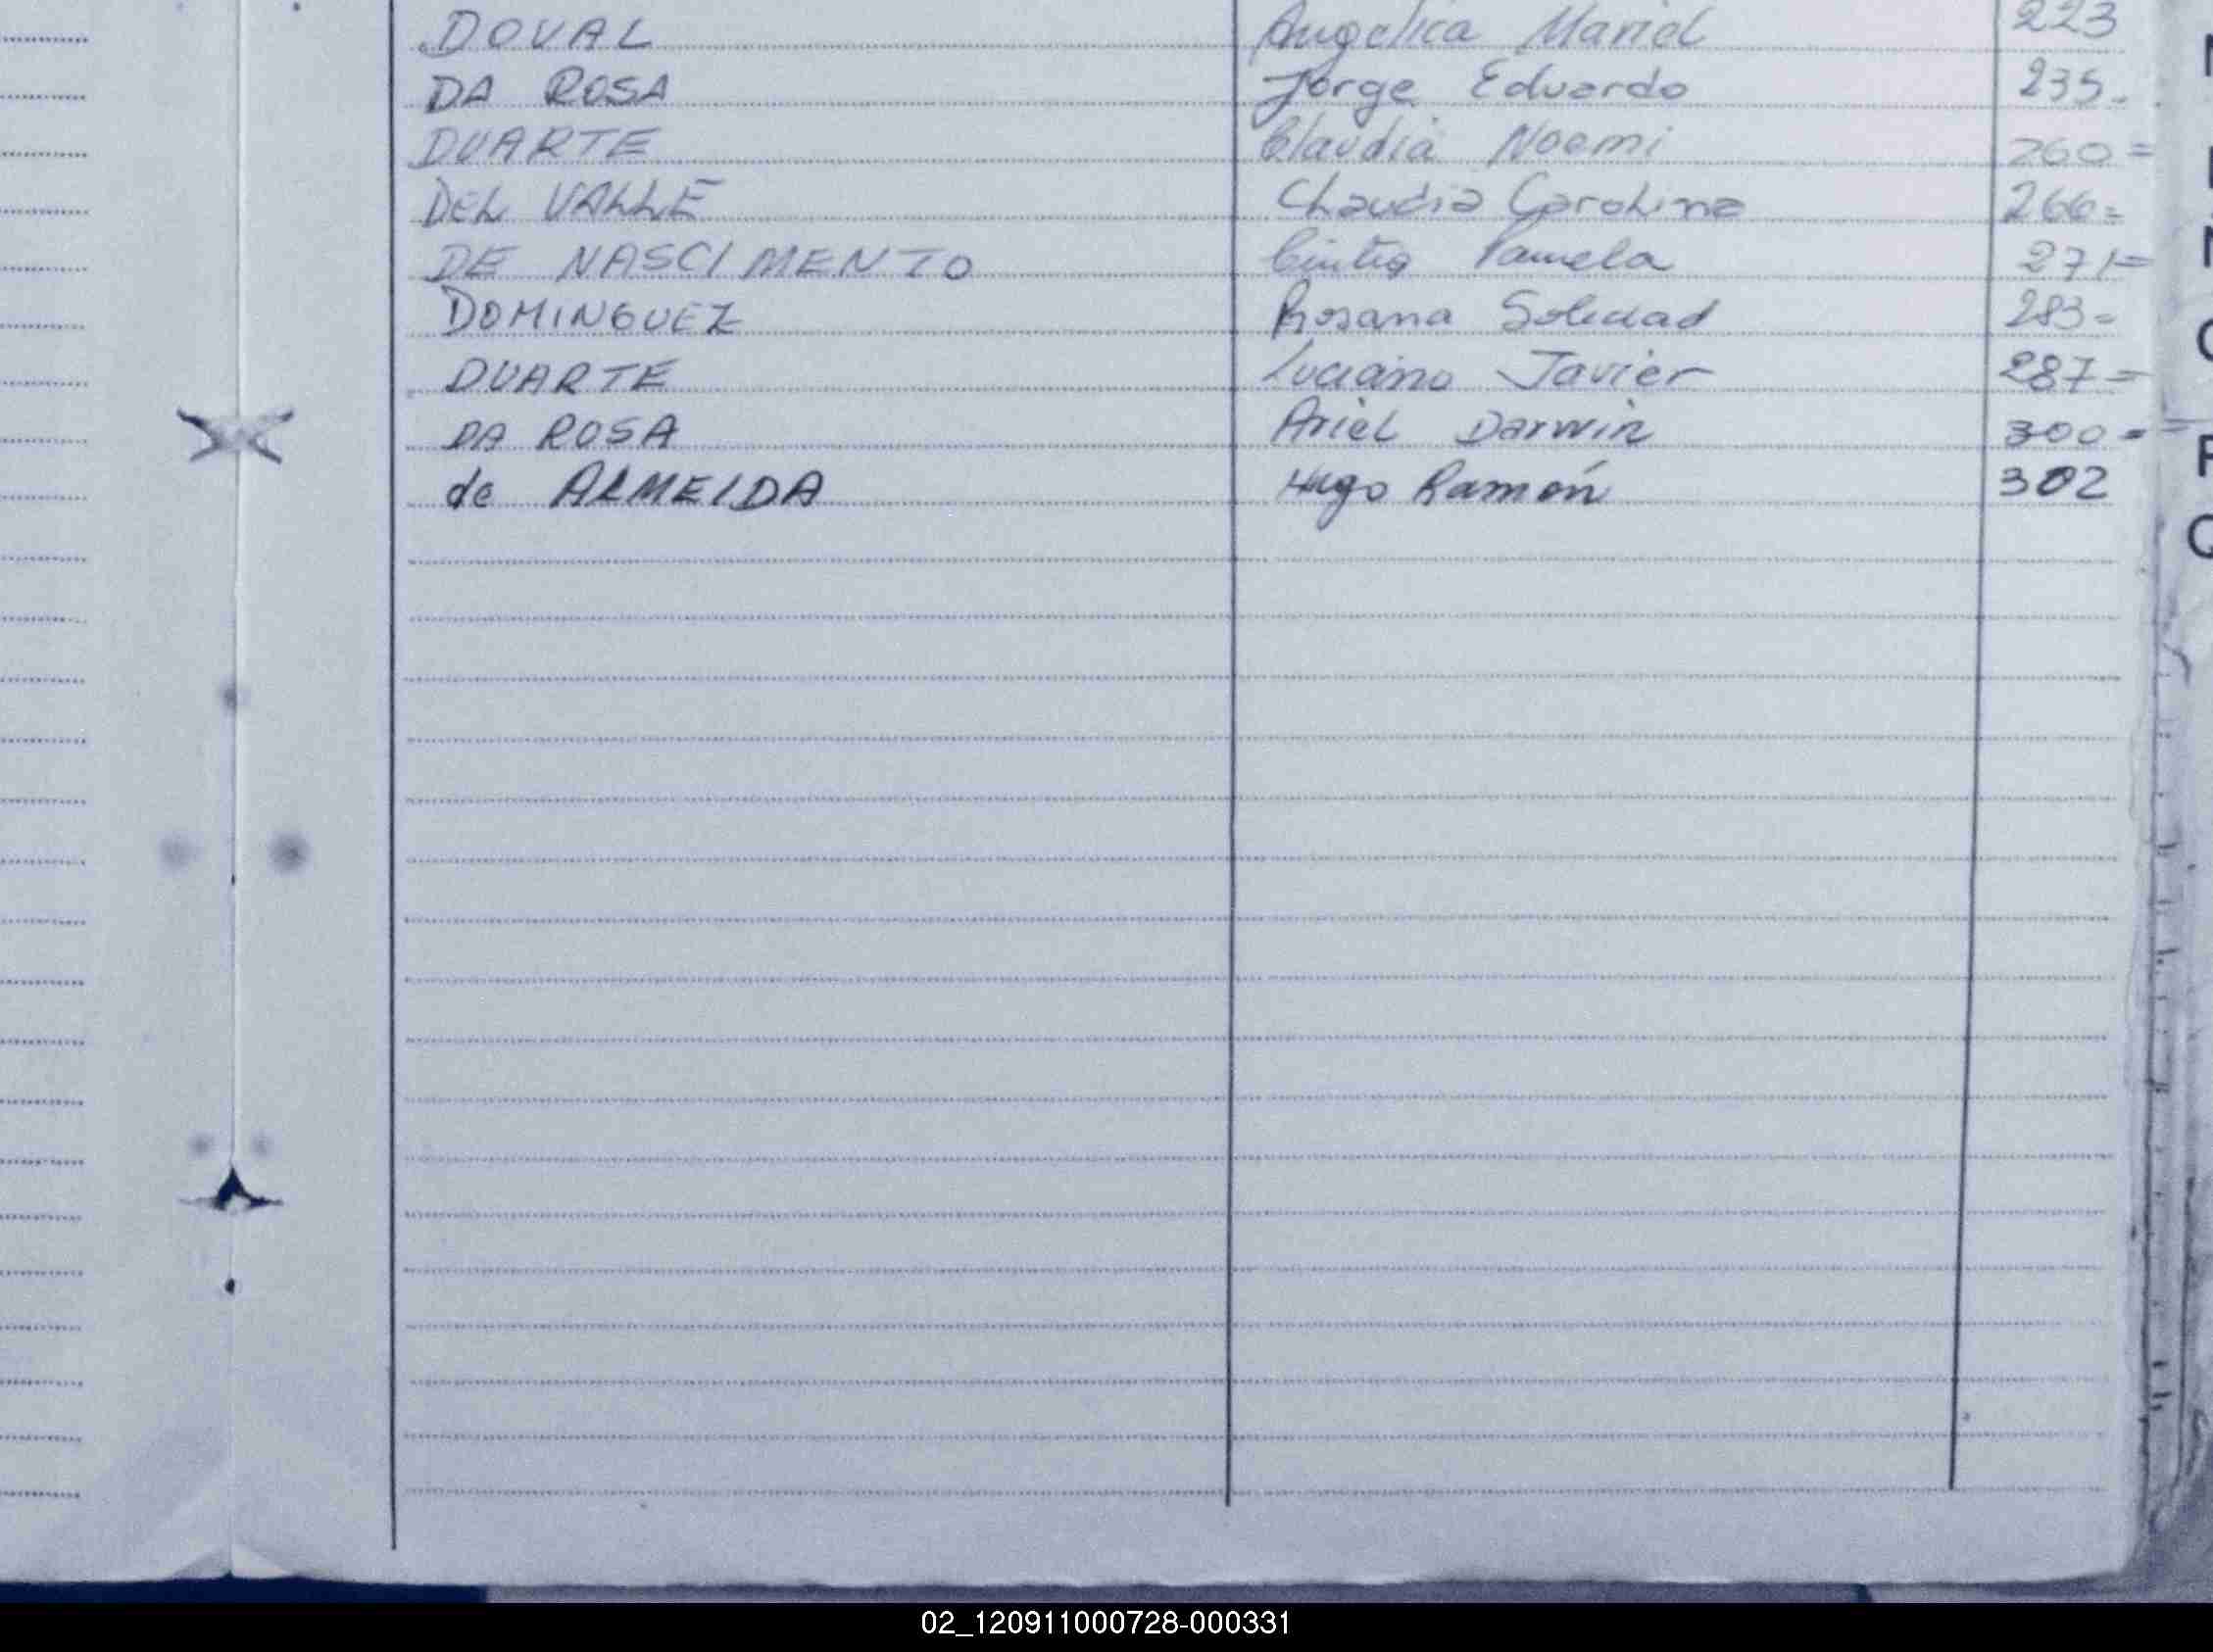 DOVAL Angelica Mariel 223
DA ROSA Jorge Eduardo 235-
DUARTE Claudia Noemi 260=
DEL VALLE Claudia Carolina 266=
DE NASCIMENTO Cintia Pamela 271=
DOMINGUEZ Rosana Soledad 283=
DUARTE Luciano Javier 287=
DA ROSA Ariel Darwin 300=
de ALMEIDA Hugo Ramón 302
02_120911000728-000331